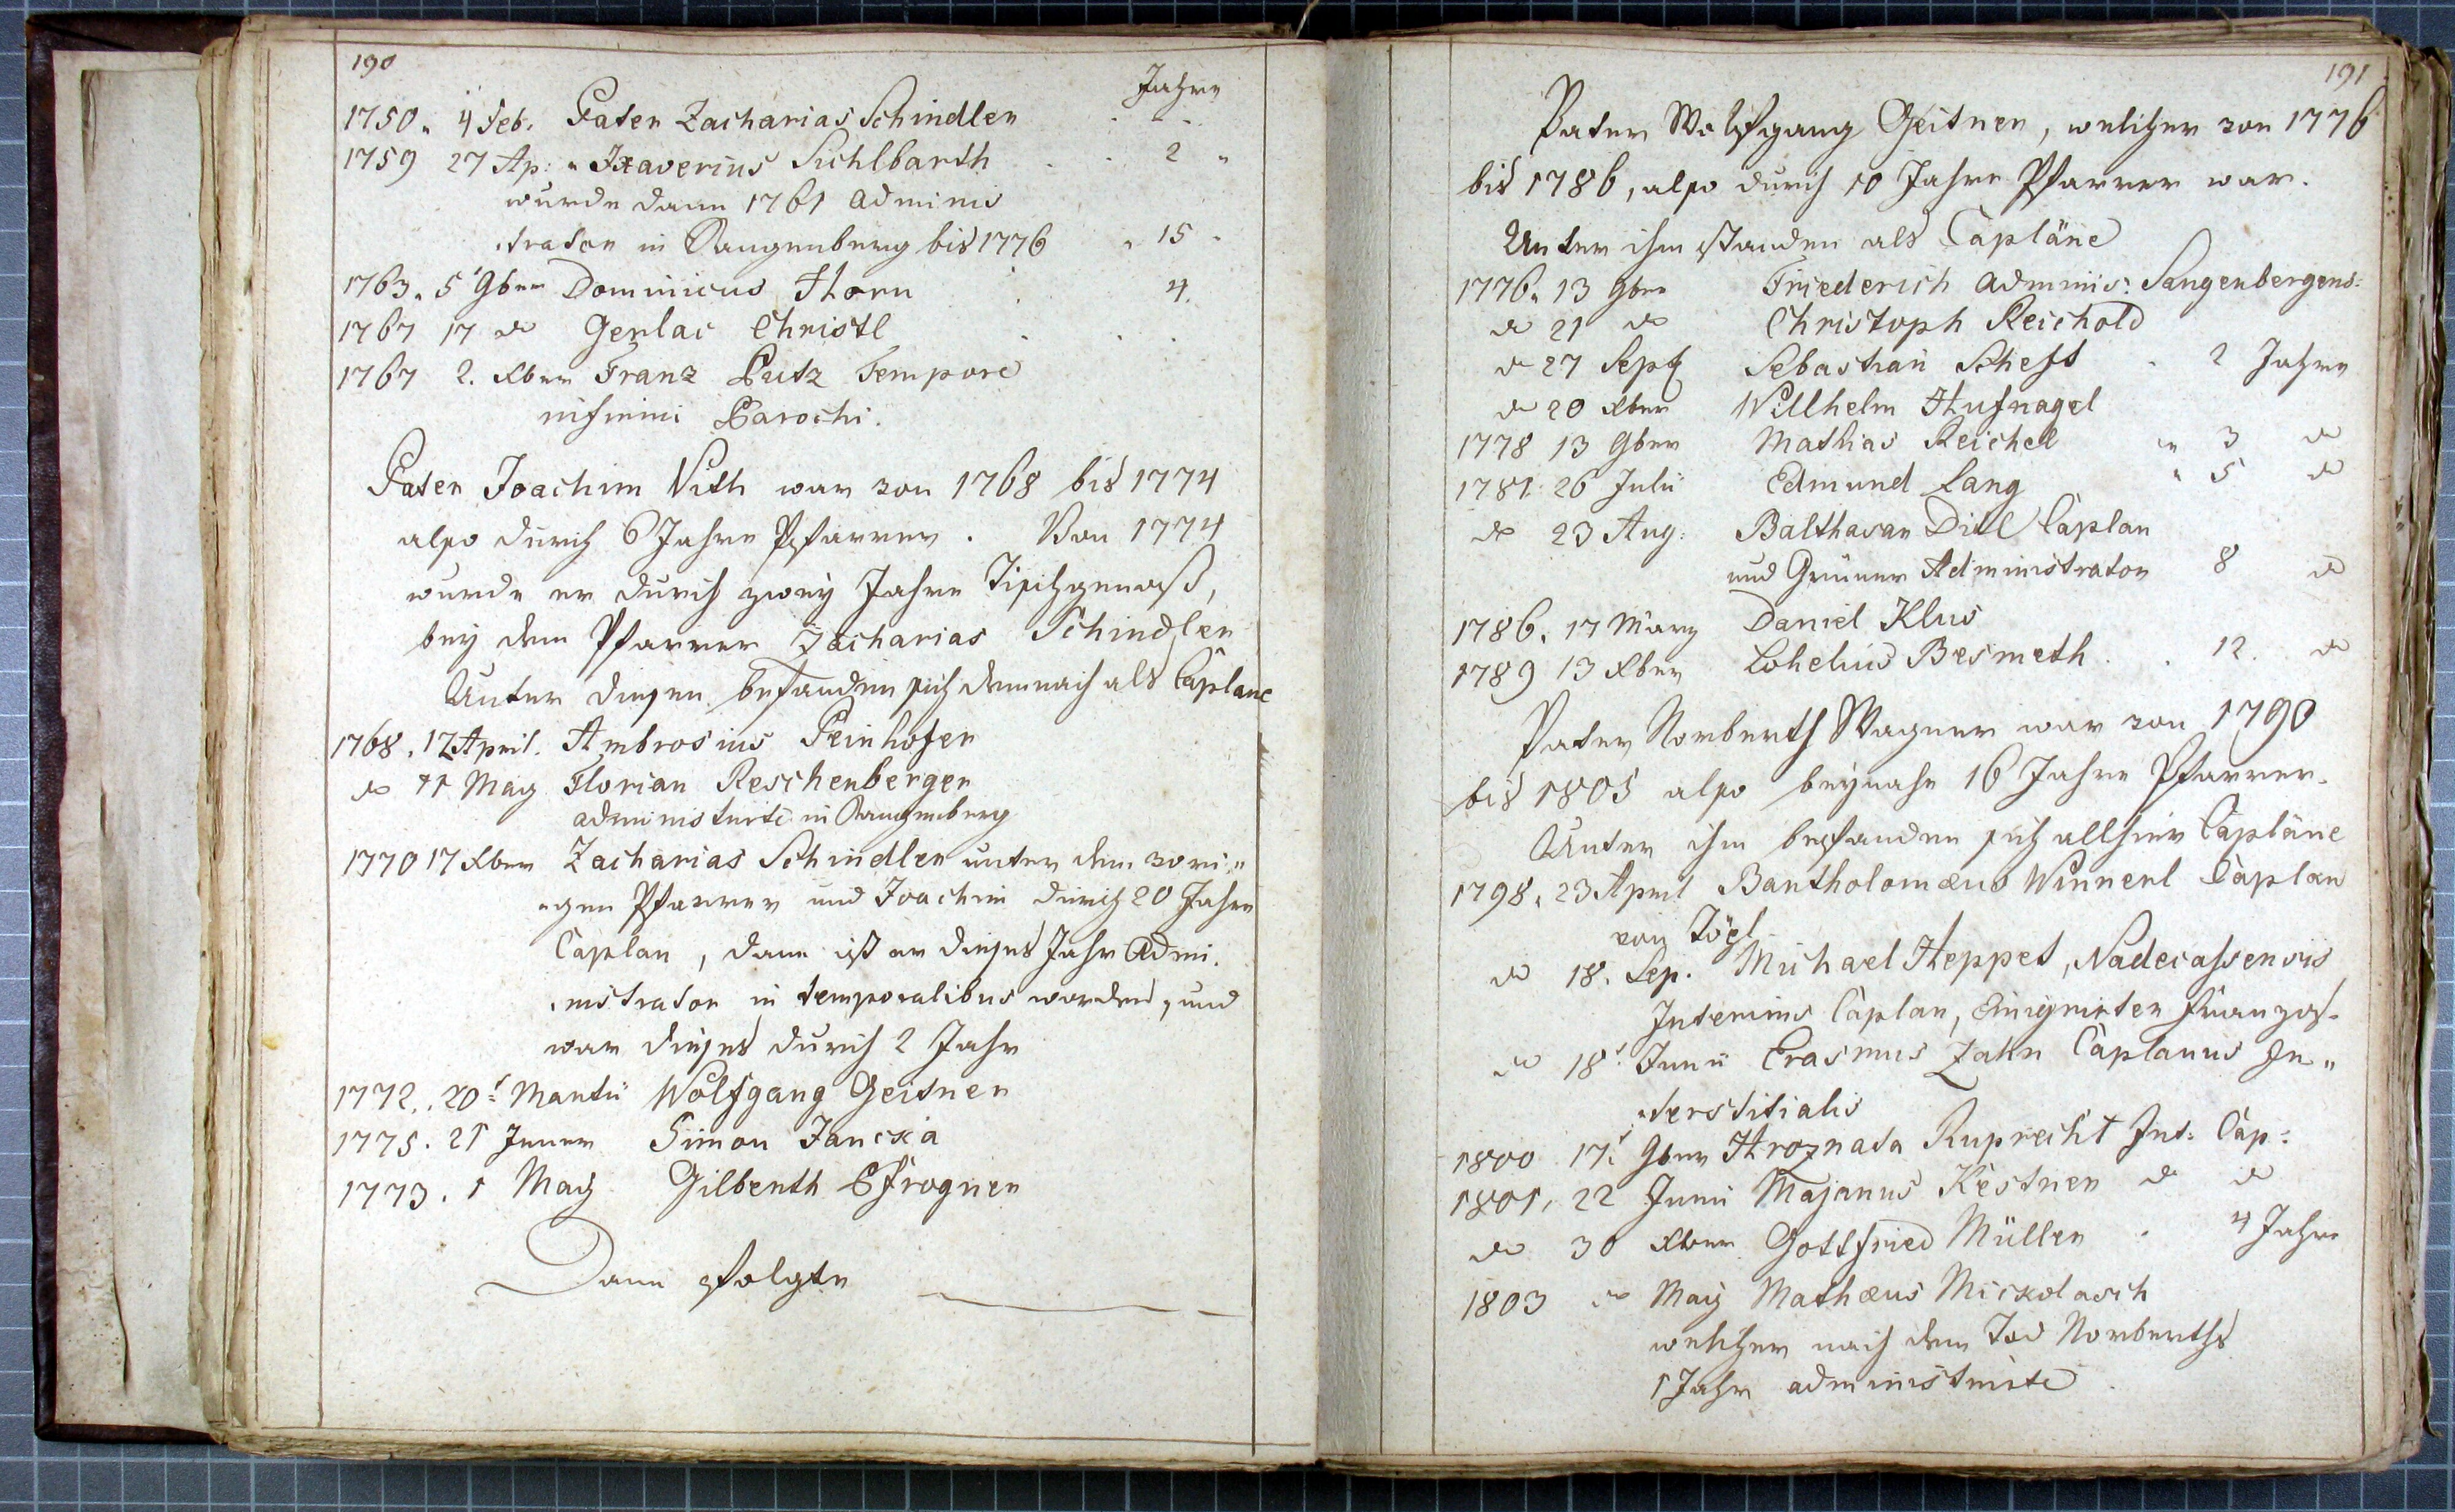 190
Jahre
1750. 4 Feb. Pater Zacharias Schindler
1759 27 Ap: " Xaverius Sichlbarth . . 2 "
wurde dann 1761 Adminis
strator in Sangenberg bis 1776 " 15 "
1763. 5t 9ber Dominicus Horn . 4.
1767 17 do Gerlac Christl . . .
1767 2. Xber Franz Putz Tempore
infirmi Parochi.
Pater Joachim Vith war von 1768 bis 1774
also durch 6 Jahre Pfarrer. Von 1774
wurde er durch zwey Jahre Tischgenoß,
bey dem Pfarrer Zacharias Schindler
Unter diesen befanden sich demnach als Caplane
1768. 12 April. Ambrosius Peinhofer
do 11 May Florian Reschenberger
administrirte in Sangenberg
1770 17 Xber Zacharias Schindler unter dem vori"
"gen Pfarrer und Joachim durch 20 Jahre
Caplan, dann ist er dieses Jahr Admi.
.nistrator in temporalibus worden, und
war dieses durch 2 Jahr
1772. 20t Martii Wolfgang Geitner
1775. 21 Jenner Simon Jancka
1773. 1 May Gilberth Pfrogner
Dann folgte
191
Pater Wolfgang Geitner, welcher von 1776
bis 1786, also durch 10 Jahre Pfarrer war.
Unter ihm standen als Capläne
1776. 13 9ber Friederich Adminis: Sangenbergens:
do 21 do Christoph Reichold
do 27 Sept Sebastian Scheft . 2 Jahre
do 20 Xber Willhelm Hufnagel
1778 13 9ber Mathias Reichel " 3 do
1781. 26 Julii Edmund Lang " 5 do
do 23 Aug: Balthasar Ditl Caplan
und Grüner Administrator 8 do
1786. 17 März Daniel Klus
1789 13 Xber Lohelius Besmeth . . 12. do
Pater Norberth Wagner war von 1790
bis 1805 also beynahe 16 Jahre Pfarrer.
Unter ihm befanden sich allhier Capläne
1798. 23 April Bartholomæus Winnerl Caplan
von Tögl
do 18. Sep. Michael Heppet,
Interims Caplan, Emigrirter Franzos.
do 18t Junii Erasmus Zahn Caplanus In"
"terstitialis
1800 17t 9ber Hroznata Ruprecht Int: Cap:
1801. 22 Junii Majanus Kestner do do
do 30 Xber Gottfried Müller . 4 Jahre
1803 do May Mathæus Mickolasch
welcher nach dem Tod Norberths
1 Jahr administrirte.